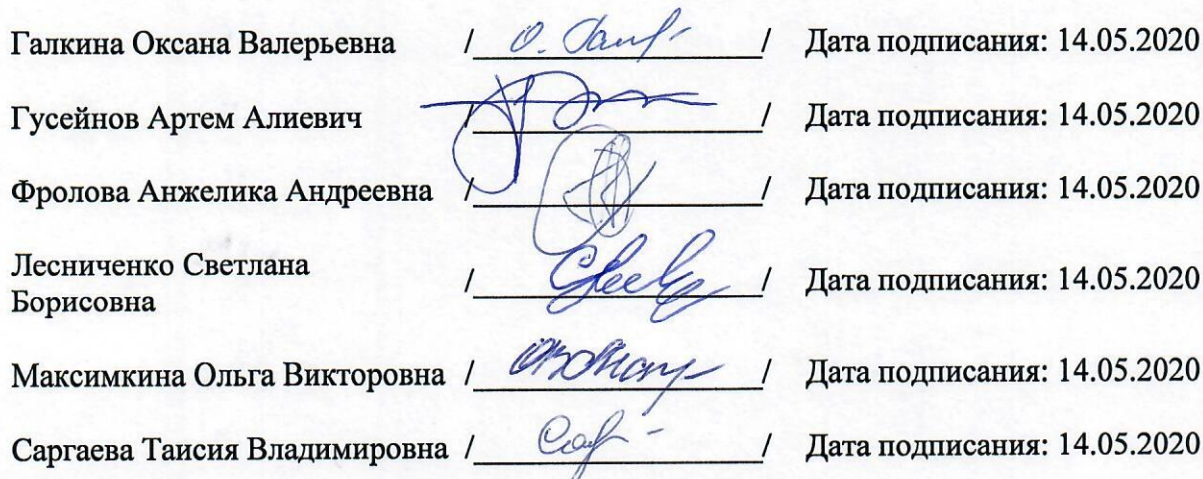 Галкина Оксана Валерьевна / / Дата подписания: 14.05.2020
Гусейнов Артем Алиевич / / Дата подписания: 14.05.2020
Фролова Анжелика Андреевна / / Дата подписания: 14.05.2020
Лесниченко Светлана
Борисовна / / Дата подписания: 14.05.2020
Максимкина Ольга Викторовна / / Дата подписания: 14.05.2020
Саргаева Таисия Владимировна / / Дата подписания: 14.05.2020